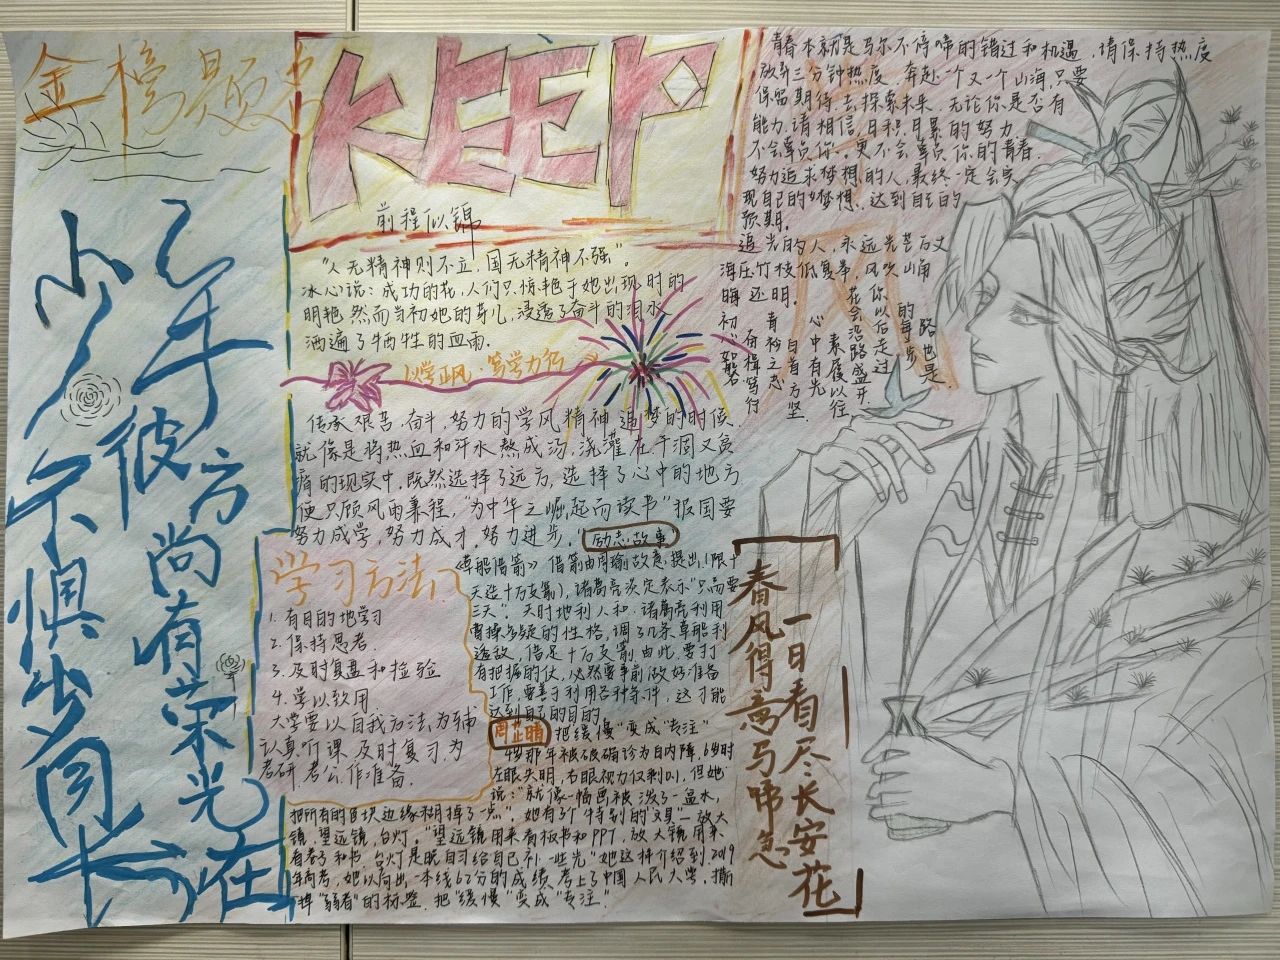 金榜题名
KEEP
前程似锦
少年不惧岁月长
彼方尚有荣光在
"人无精神则不立,国无精神不强"。
冰心说:成功的花,人们只惊艳于她出现时的
明艳,然而当初她的芽儿,浸透了奋斗的泪水
洒遍了牺牲的血雨.
以学正风·笃学力行
传承艰苦.奋斗,努力的学风精神.追梦的时候.
就像是将热血和汗水熬成汤,浇灌在干涸又贫
瘠的现实中.既然选择了远方,选择了心中的地方
便只顾风雨兼程,"为中华之崛起而读书"报国要
努力成学,努力成才,努力进步.
励志故事
《草船借箭》借箭由周瑜故意提出(限十
天造十万支箭),诸葛亮淡定表示"只需要
三天".天时地利人和.诸葛亮利用
曹操多疑的性格,调了几条草船利
诱敌,借足十万支箭.由此,要打
有把握的仗,必然要事前做好准备
工作,要善于利用各种条件,这才能
达到自己的目的
学习方法.
1.有目的地学习
2.保持思考.
3.及时复盘和检验
4.学以致用.
大学要以自我为法,为辅
认真听课.及时复习.为
考研.考公作准备.
周芷晴
把缓慢"变成"专注"
4岁那年被确诊为白内障,6岁时
左眼失明,右眼视力仅剩0.1,但她
说:"就像一幅画被泼了一盆水,
把所有的色块边缘糊掉了一点".她有3个特别的"文具"—放大
镜.望远镜,台灯。"望远镜用来看板书和PPT,放大镜用来
看卷子和书,台灯是晚自习给自己补一些光"她这样介绍到.2019
年高考,她以高出一本线67分的成绩考上了中国人民大学.撕
掉"弱者"的标签.把"缓慢"变成"专注"
青春本就是马尔不停啼的错过和机遇,请保持热度
放弃三分钟热度 奔赴一个又一个山海,只要
保留期待.去探索未来.无论你是否有
能力,请相信,日积月累的努力
不会辜负你.更不会辜负你的青春.
努力追求梦想的人,最终一定会实
现自己的梦想.达到自己的
预期.
追光的人,永远光芒万丈
海压竹枝低复举,风吹山角
晦还明.
你以后走过
的每步
路也是
花会沿路盛开
素履以往
心中有光
白首方坚
青衿之志
奋楫笃行
初心如磐
春风得意马啼急
一日看尽长安花